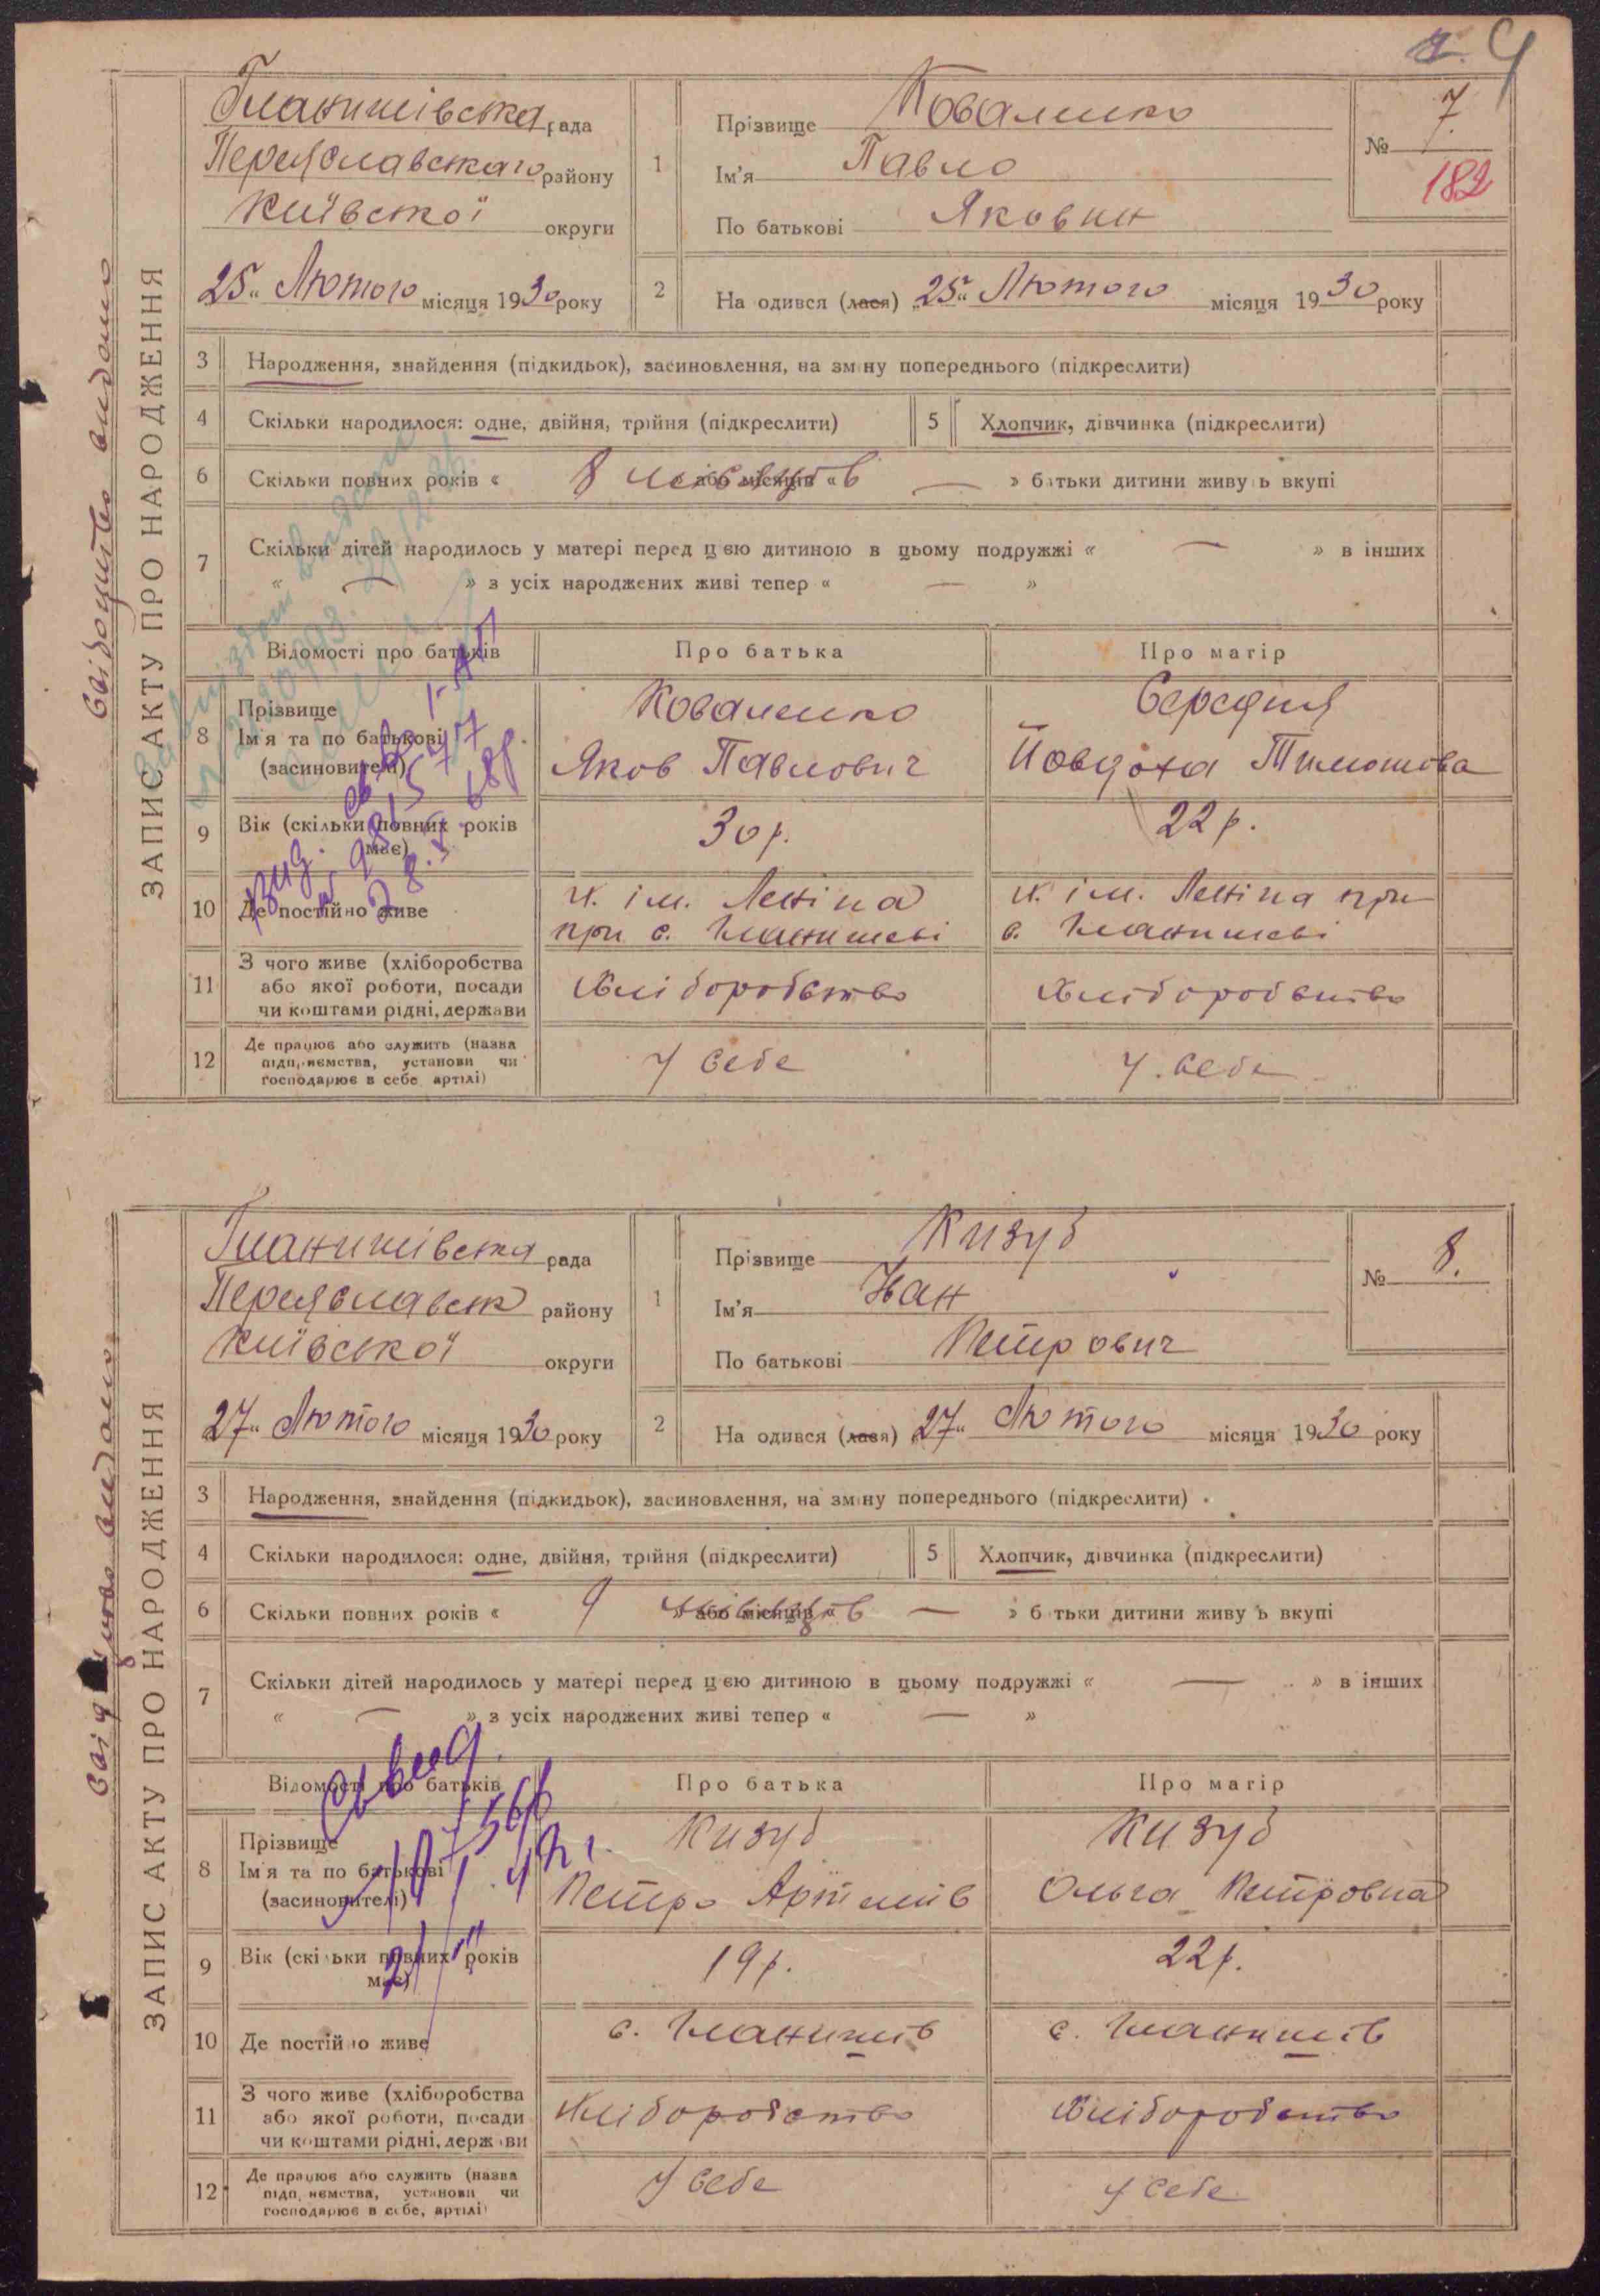 4
Гланишівська рада
Переяславського району
Київської округи
25 " Лютого місяця 1930 року
1
Прізвище Коваленко
Ім'я Павло
По батькові Яковин
№ 7.
182
2
На одився (лася) „25" Лютого місяця 1930 року
3 Народження, знайдення (підкидьок), засиновлення, на зміну попереднього (підкреслити)
4 Скільки народилося: одне, двійня, трійня (підкреслити) 5 Хлопчик, дівчинка (підкреслити)
6 Скільки повних років « 8 місяців або місяців « — » батьки дитини живуь вкупі
7 Скільки дітей народилось у матері перед цею дитиною в цьому подружжі « — » в інших
« — » з усіх народжених живі тепер « — »
Відомості про батьків Про батька Про матір
8 Прізвище
Ім'я та по батькові
(засновителі)
Коваленко
Яков Павлович
Середня
Йовдоха Тимошова
9 Вік (скільки повних років
має)
30 р. 22 р.
10 Де постійно живе
х. ім. Леніна
при с. Гланишеві
х. ім. Леніна при
с. Гланишеві
11 З чого живе (хліборобства
або якої роботи, посади
чи коштами рідні, держави
Хліборобство Хліборобство
12 Де працює або служить (назва
підприємства, установи чи
господарює в себе артілі)
У себе У себе
ЗАПИС АКТУ ПРО НАРОДЖЕННЯ
Свідоцтво видано
Гланишівська рада
Переяславськ району
Київської округи
27 " Лютого місяця 1930 року
1
Прізвище Кизуб
Ім'я Іван
По батькові Петрович
№ 8.
2
На одився (лася) „27" Лютого місяця 1930 року
3 Народження, знайдення (підкидьок), засиновлення, на зміну попереднього (підкреслити)
4 Скільки народилося: одне, двійня, трійня (підкреслити) 5 Хлопчик, дівчинка (підкреслити)
6 Скільки повних років « 9 місяців » або місяців « — » б тьки дитини живу ь вкупі
7 Скільки дітей народилось у матері перед цею дитиною в цьому подружжі « — » в інших
« — » з усіх народжених живі тепер « — »
Відомості про батьків Про батька Про матір
8 Прізвище
Ім'я та по батькові
(засиновителі)
Кизуб
Петро Артемів
Кизуб
Ольга Петровна
9 Вік (скільки повних років
має)
19 р. 22 р.
10 Де постійно живе
с. Гланишів с. Гланишів
11 З чого живе (хліборобства
або якої роботи, посади
чи коштами рідні, держави
Хліборобство Хліборобство
12 Де працює або служить (назва
підприємства, установи чи
господарює в себе, артілі)
У себе У себе
ЗАПИС АКТУ ПРО НАРОДЖЕННЯ
видано